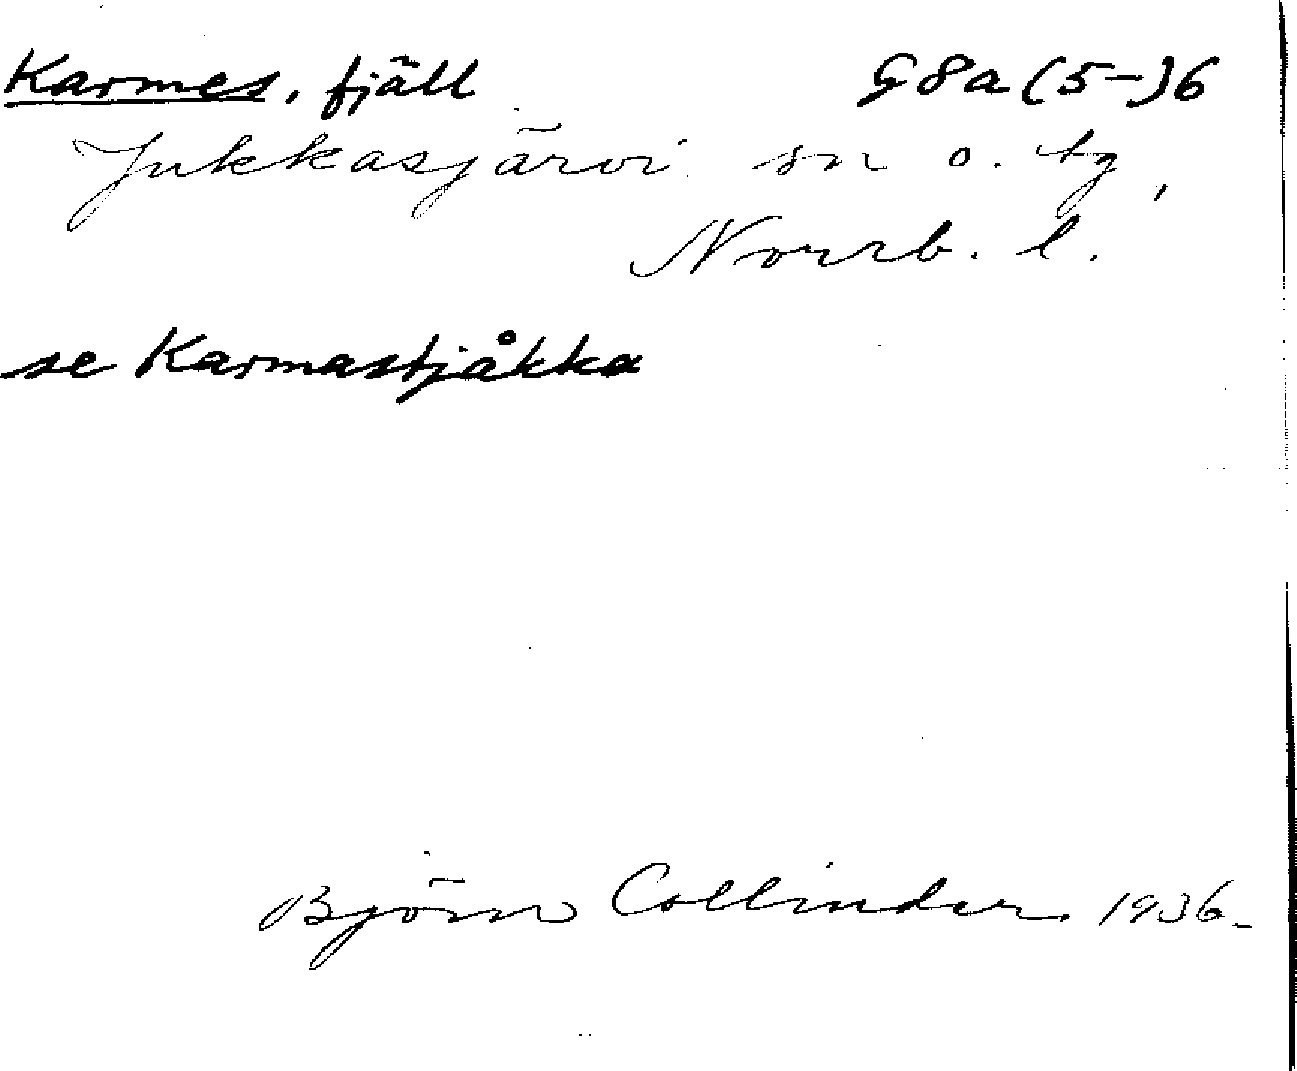 Karmes, fjäll G8a(5-)6
Jukkasjärvi sn o. tg,
Norrb. l.
se Karmastjåkka
Björn Collinder 1936.